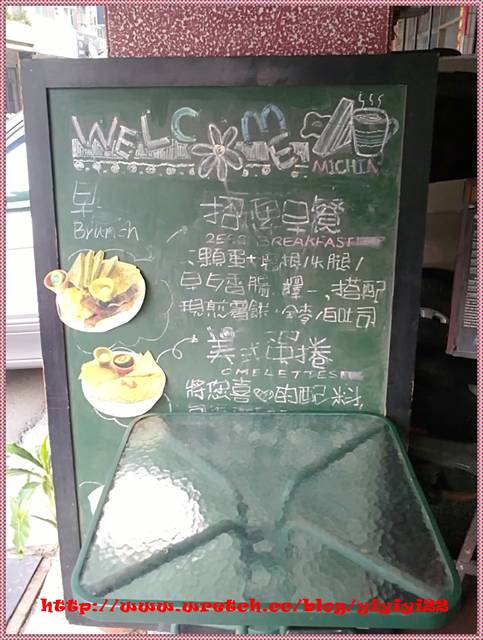 WELCOME
MICHIA
早
Brunch
招牌早餐
ZERO BREAKFAST
顆蛋+培根/火腿/
旦勺香腸 擇一、搭配
現煎薯餅、全麥/白吐司
美式蛋捲
OMELETTES
將您喜❤的配料,
http://www.wretch.cc/blog/yiyiyi22